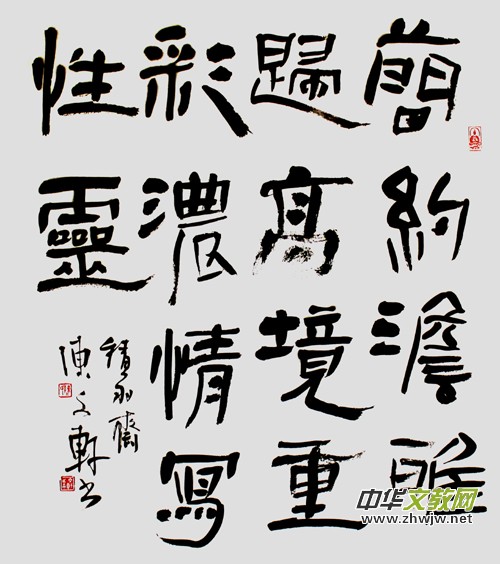 簡約澹雅
歸高境重
彩濃情寫
性靈
積永齋
陳文軒书
中华文教网
www.zhwjw.net